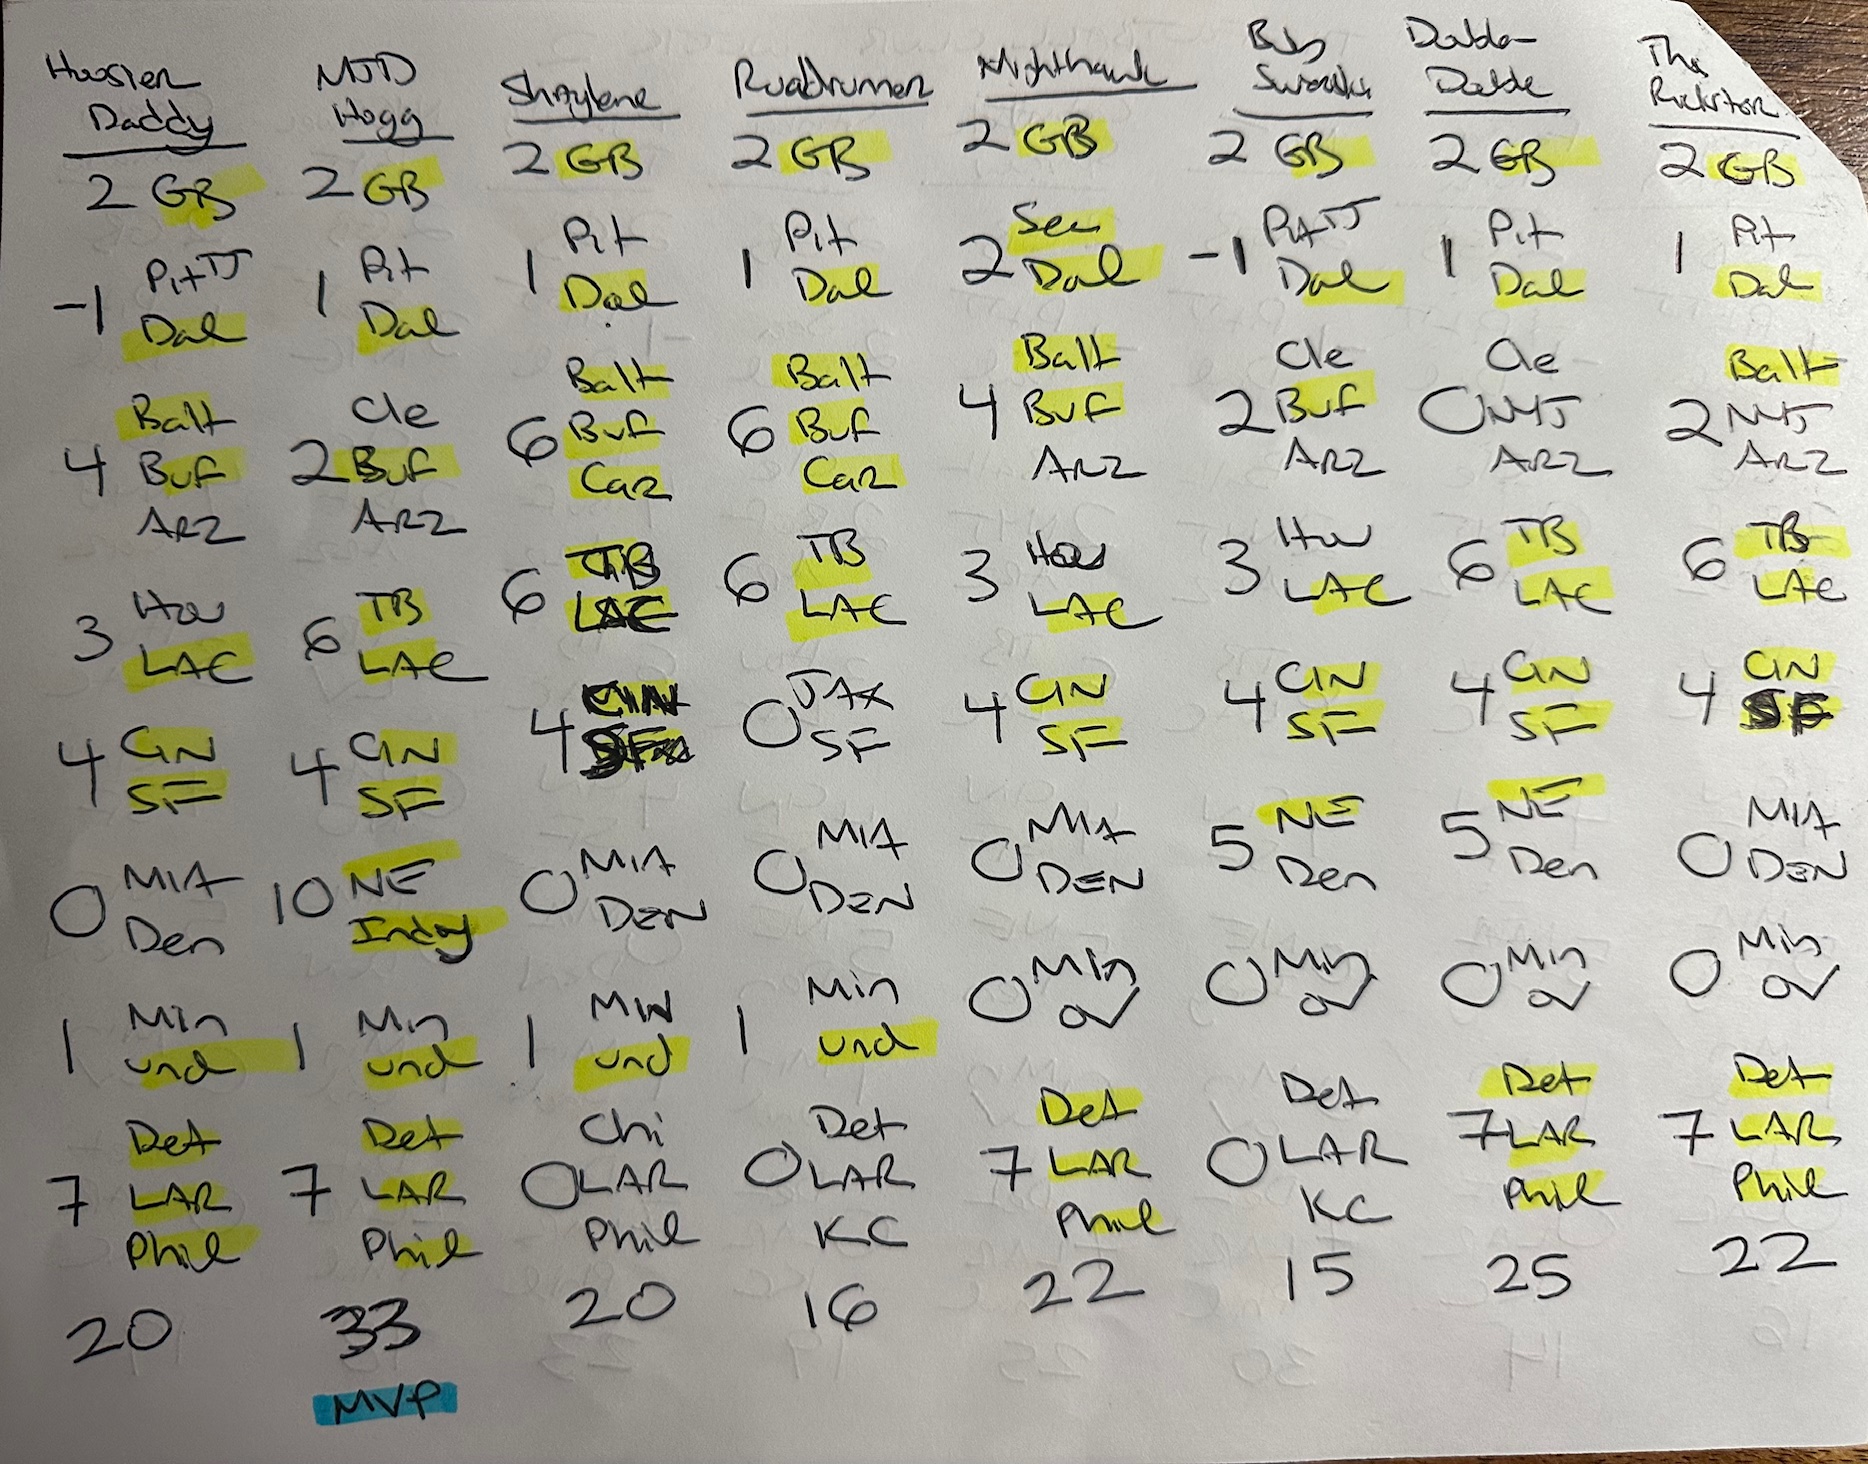 Hoosier
Daddy
2 GB
Pit TJ
-1
Dal
Balt
4 Buf
ARZ
3 Hou
LAC
4 CIN
SF
0 MIA
Den
1 Min
und
Det
7 LAR
Phil
20
MJD
Hogg
2 GB
1 Pit
Dal
Cle
2 Buf
ARZ
6 TB
LAC
4 CIN
SF
10 NE
Indy
1 Min
und
Det
7 LAR
Phil
33
MVP
Shaylene
2 GB
1 Pit
Dal
Balt
6 Buf
Car
6 TB
LAC
4 CIN
SF
0 MIA
DEN
1 MIN
und
Chi
0 LAR
Phil
20
Roadrunner
2 GB
1 Pit
Dal
Balt
6 Buf
Car
6 TB
LAC
0 JAX
SF
0 MIA
DEN
1 Min
und
Det
0 LAR
KC
16
Nighthawk
2 GB
Sea
2 Dal
Balt
4 Buf
ARZ
3 Hou
LAC
4 CIN
SF
0 MIA
DEN
0 Min
ov
Det
7 LAR
Phil
22
Bob
2 GB
Pit TJ
-1
Dal
Cle
2 Buf
ARZ
3 Hou
LAC
4 CIN
SF
5 NE
Den
0 Min
ov
Det
0 LAR
KC
15
2 GB
1 Pit
Dal
Cle
0 NYJ
ARZ
6 TB
LAC
4 CIN
SF
5 NE
Den
0 Min
ov
Det
7 LAR
Phil
25
The
Rickitor
2 GB
1 Pit
Dal
Balt
2 NYJ
ARZ
6 TB
LAC
4 CIN
SF
0 MIA
DEN
0 Min
ov
Det
7 LAR
Phil
22